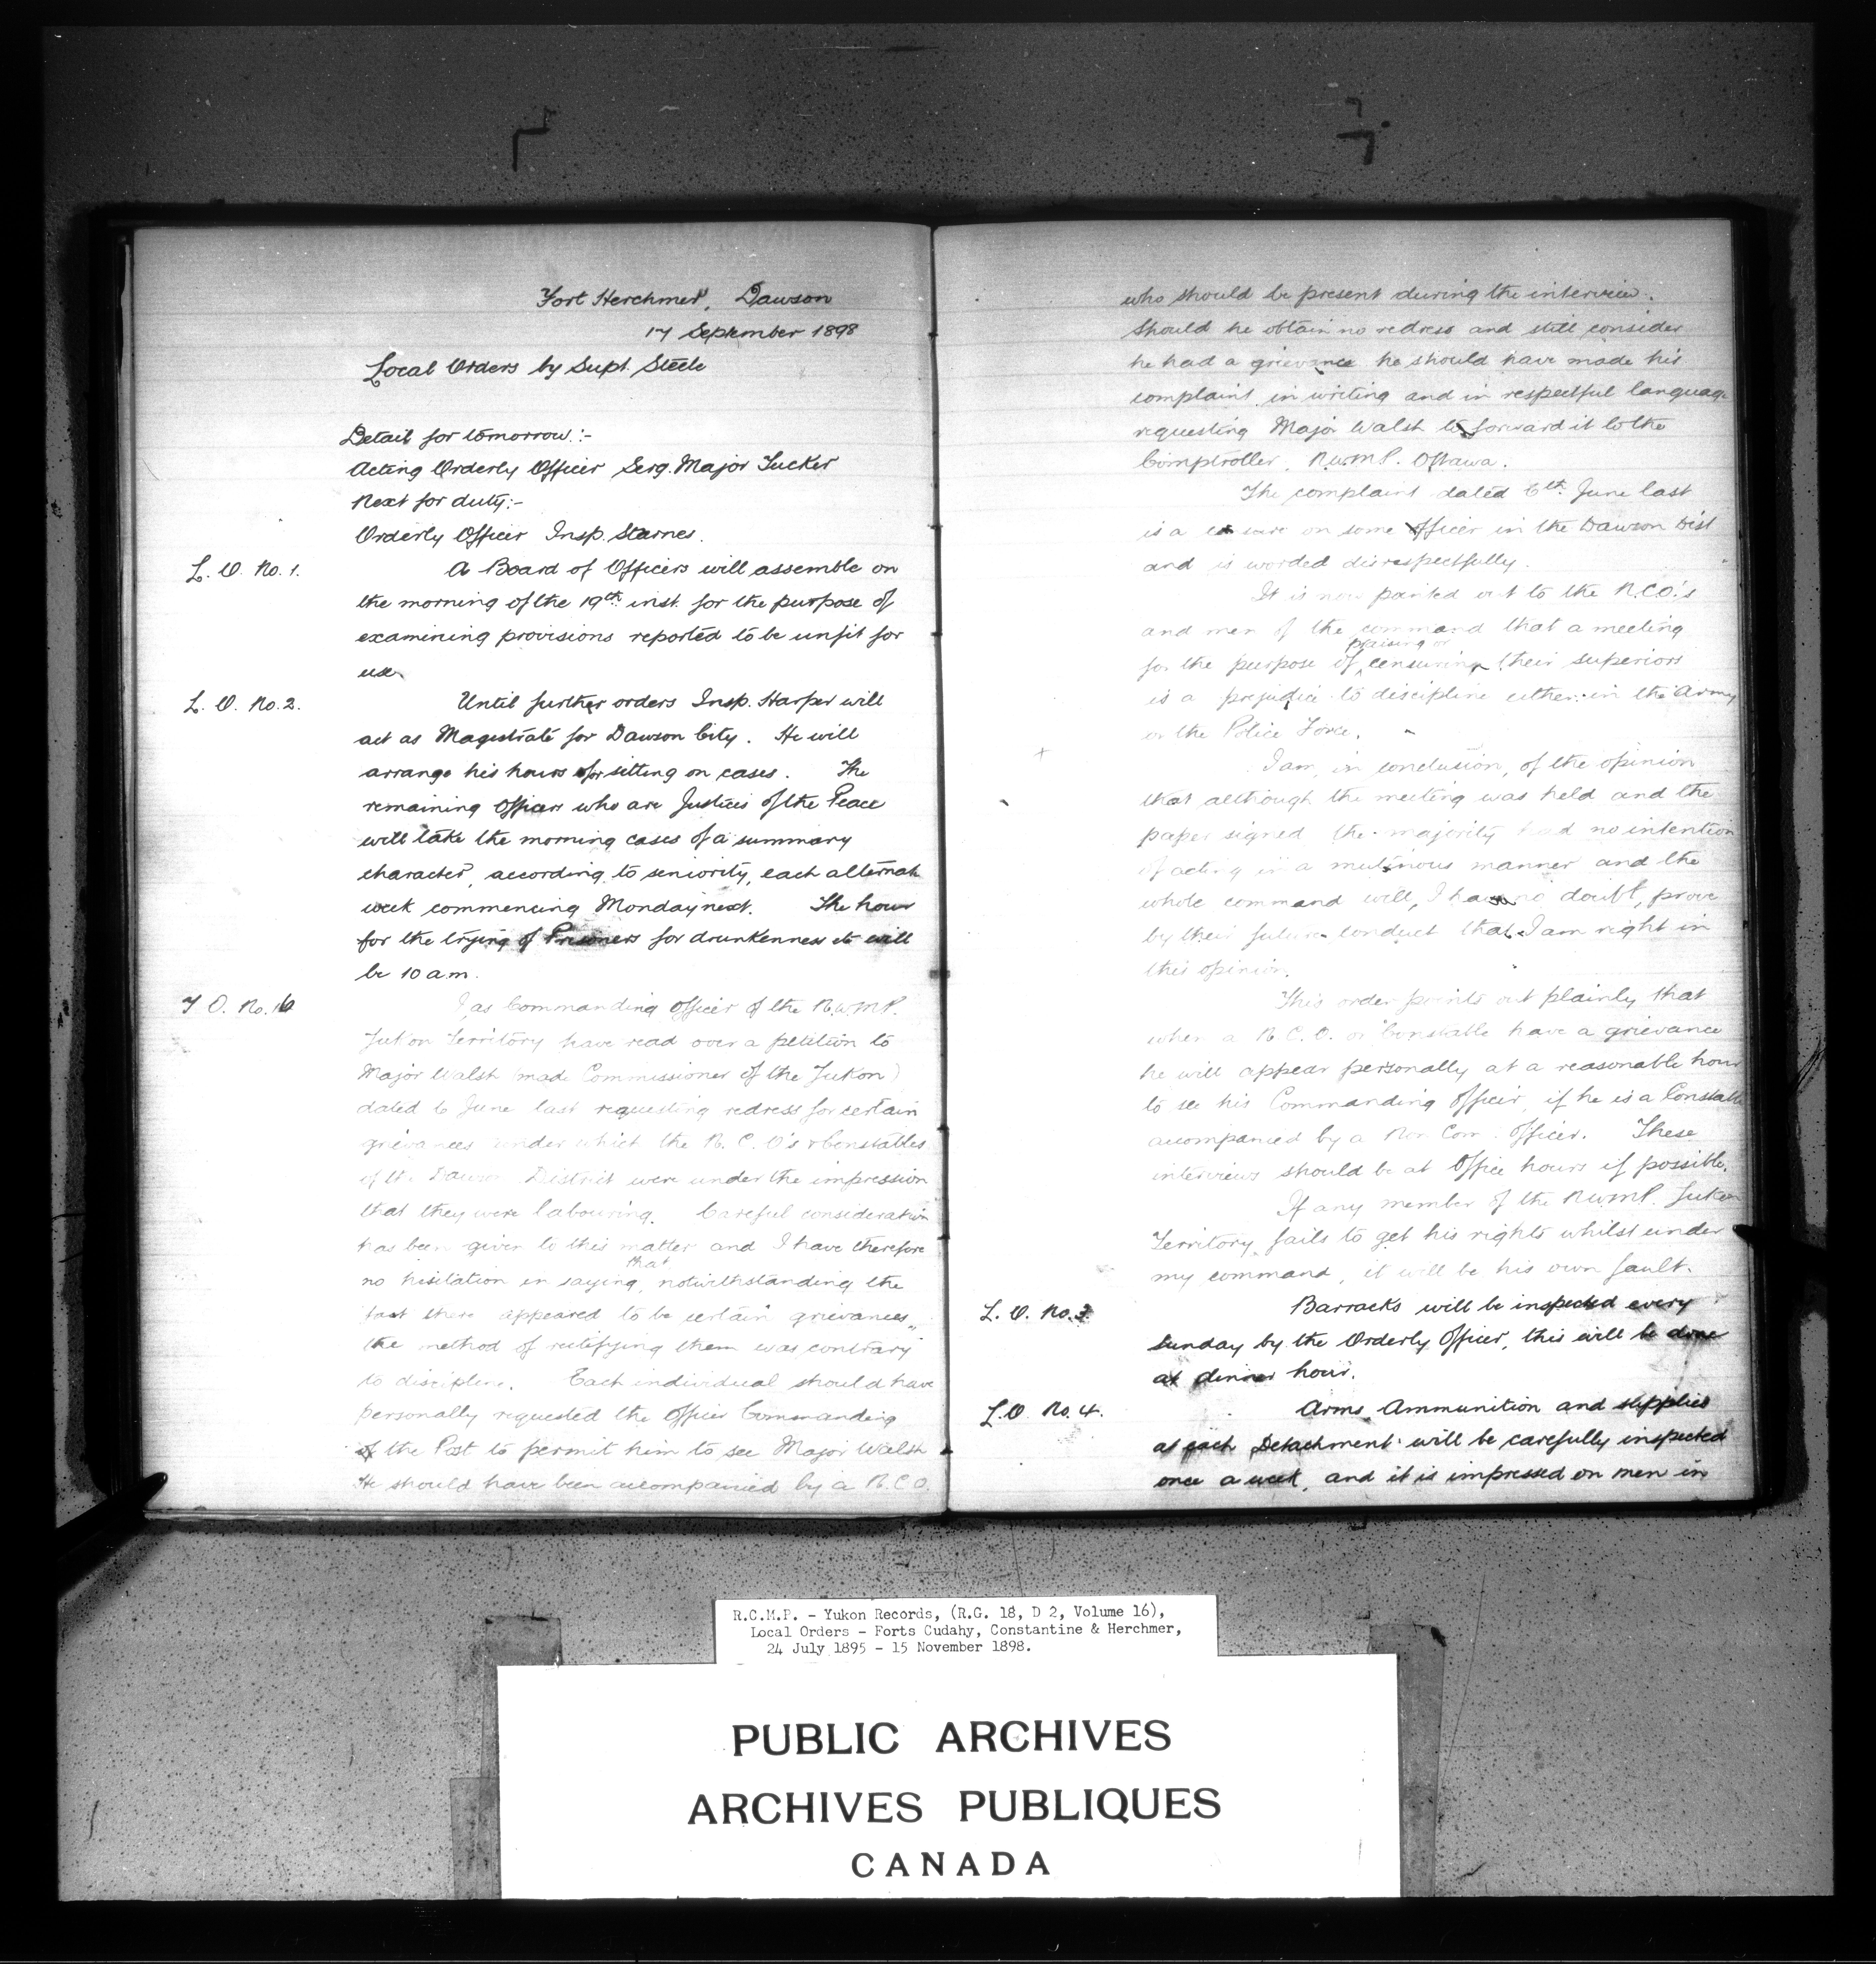 Fort Herchmer, Dawson
17 September 1898
Local Orders by Supt. Steele
Detail for tomorrow:-
Acting Orderly Officer Serg. Major Tucker
Next for duty:-
Orderly Officer Insp. Starnes.
L. O. No. 1.
A Board of Officers will assemble on
the morning of the 19th inst. for the purpose of
examining provisions reported to be unfit for
use.
L. O. No. 2.
Until further orders Insp. Harper will
act as Magistrate for Dawson City. He will
arrange his hours for sitting on cases. The
remaining Officers who are Justices of the Peace
will take the morning cases of a summary
character, according to seniority, each alternate
week commencing Monday next. The hour
for the trying of Prisoners for drunkenness etc will
be 10 a.m.
Y O. No. 16
I as Commanding Officer of the N.W.M.P.
Yukon Territory have read over a petition to
Major Walsh (made Commissioner of the Yukon)
dated 6 June last requesting redress for certain
grievances under which the N. C. O's & Constables
of the Dawson District were under the impression
that they were labouring. Careful consideration
has been given to this matter and I have therefore
no hesitation in saying, that notwithstanding the
fact there appeared to be certain grievances,
the method of rectifying them was contrary
to discipline. Each individual should have
personally requested the Officer Commanding
of the Post to permit him to see Major Walsh
He should have been accompanied by a N.C.O.
who should be present during the interview.
Should he obtain no redress and still consider
he had a grievance he should have made his
complaint in writing and in respectful language
requesting Major Walsh to forward it to the
Comptroller, N.W.M.P. Ottawa.
The complaint dated 6th June last
is a censure on some Officer in the Dawson Dist
and is worded disrespectfully.
It is now pointed out to the N.C.O.'s
and men of the command that a meeting
for the purpose of praising or censuring their superiors
is a prejudice to discipline either in the Army
or the Police Force.
I am, in conclusion, of the opinion
that although the meeting was held and the
paper signed the majority had no intention
of acting in a mutinous manner and the
whole command will, I have no doubt, prove
by their future conduct that I am right in
this opinion.
This order points out plainly that
when a N. C. O. or Constable have a grievance
he will appear personally at a reasonable hour
to see his Commanding Officer, if he is a Constable
accompanied by a Non Com. Officer. These
interviews should be at Office hours if possible.
If any member of the N.W.M.P. Yukon
Territory fails to get his rights whilst under
my command, it will be his own fault.
L. O. No. 3
Barracks will be inspected every
Sunday by the Orderly Officer, this will be done
at dinner hour.
L. O. No. 4.
Arms Ammunition and supplies
at each Detachment will be carefully inspected
once a week, and it is impressed on men in
R.C.M.P. - Yukon Records, (R.G. 18, D 2, Volume 16),
Local Orders - Forts Cudahy, Constantine & Herchmer,
24 July 1895 - 15 November 1898.
PUBLIC ARCHIVES
ARCHIVES PUBLIQUES
CANADA